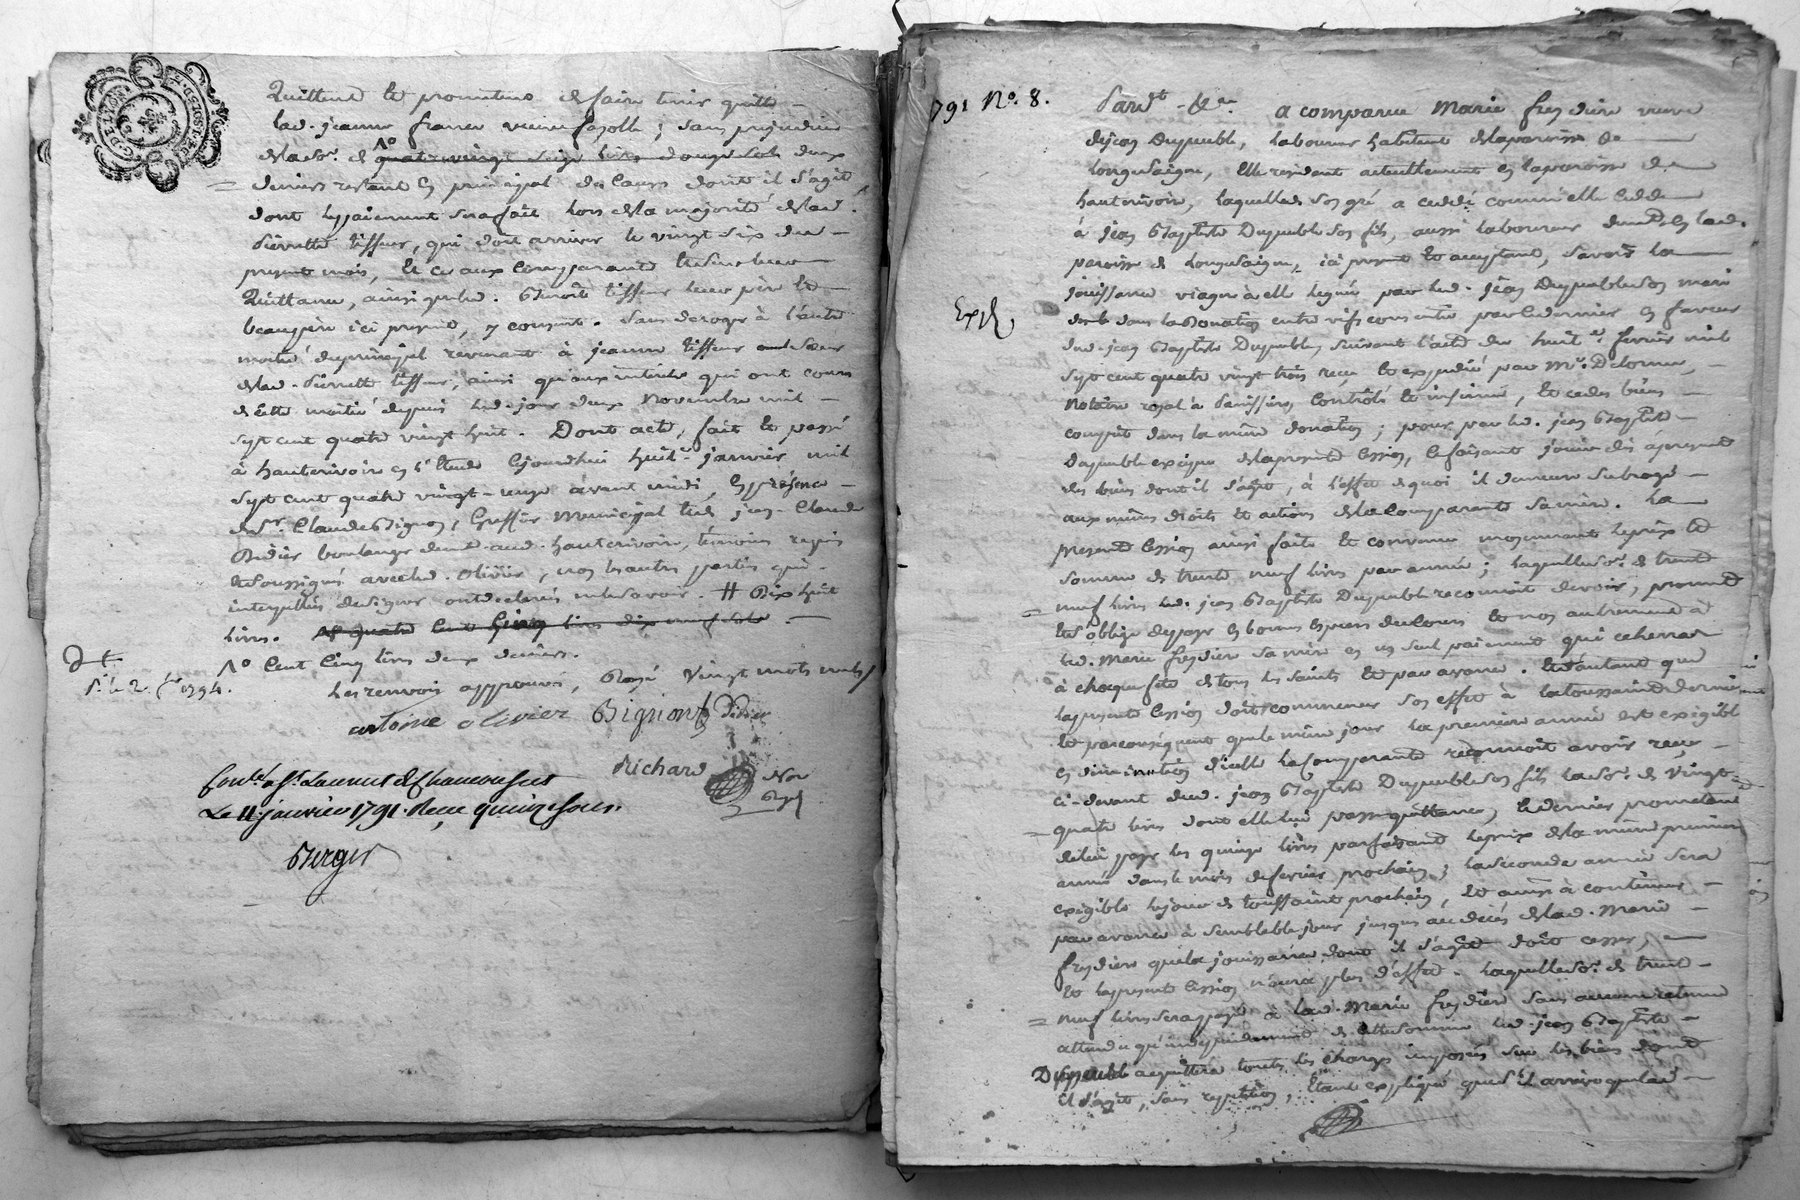 quittence et promettens de faire tenir quitte
lad. jeanne france veuve fayolle ; sans prejudice
de la so.e de quatre vingt seize livres douze sols deux
deniers restant en principal des causes dont il s'agit
dont le paiement sera fait lors de la majorité de lad.
Pierrette tisseur, qui doit arriver le vingt six du
present mois, et ce aux comparants
quittance, ainsi que led. Benoit tisseur leur père et
beaupère ici present, y consent. Sans deroger à l'autre
moitié du principal revenant à jeanne tisseur soeur
de lad. Pierrette tisseur, ainsi qu'aux interets qui ont couru
de cette moitié depuis led. jour deux Novembre mil
sept cent quatre vingt huit. Dont acte, fait et passé
à hauterivoire en l'Etude cejourdhui huit.e janvier mil
sept cent quatre vingt-onze avant midi, en présence
de S.r Claude Bignon, Greffier Municipal et de jean-Claude
Didier boulanger dem.t aud. hauterivoire, témoins requis
et soussignés avec led. Olivier, non les autres parties qui
interpellées de signer ont declarés ne le savoir. # Dix huit
livres. et quatre cent cinq livres dix neuf sols
^o Cent Cinq livres deux deniers.
Les renvois approuvés, Rayé vingt mots nuls
antoine olivier Bignon Didier
Richard Not
Royal
Con.lé a St. Laurent de Chamousset
Le 11 janvier 1791. Recu quinze sous.
Berger
1791 N°. 8.
Pard.t &.a a comparue Marie freydiere veuve
de jean Dupeuble, laboureur habitant de la paroisse de
longessaigne, Elle residant actuellement en la paroisse de
hauterivoire, laquelle de son gré a cedé comme elle cede
à jean Baptiste Dupeuble son fils, aussi laboureur dem.t en lad.
paroisse de longesaigne, ici present et acceptant, savoir la
jouissance viagere à elle leguée par led. jean Dupeuble son mari
Exp.é
dans la Donation entre vifs consentie par ce dernier en faveur
dud. jean Baptiste Dupeuble, suivant l'acte du huit.e fevrier mil
sept cent quatre vingt trois reçu et expedié par M.e Delorme,
Notaire royal à Panissieres Controlé et insinué, et ce des biens
compris dans la même donation ; pour par led. jean Baptiste
Dupeuble en vigueur de la presente cession, en faisant jouir dès apresent
des biens dont il s'agit, à l'effet de quoi il demeure subrogé
aux mêmes droits et actions de la Comparante sa mère. La
presente cession ainsi faite et convenue moyennant le prix et
somme de trente neuf livres par année ; laquelle so.e de trente
neuf livres led. jean Baptiste Dupeuble reconnoit devoir, promet
et s'oblige de payer en bonnes especes de cours et non autrement à
lad. Marie freydiere sa mère en un seul paiement qui echerra
à chaque fête de tous les saints et par avance. Et d'autant que
la presente cession doit commencer son effet à la toussaint derniere
et par conséquent que le même jour la premiere année est exigible
en diminution d'icelle la Comparante reconnoit avoir reçu
ci-devant dud. jean Baptiste Dupeuble son fils la so.e de vingt
quatre livres dont elle lui passe quittance, ce dernier promettant
de lui payer les quinze livres parfaisant le prix de la même premiere
année dans le mois de fevrier prochain ; la seconde année sera
exigible le jour de toussaint prochain, et ainsi à continuer
par avance à semblable jour jusques au décès de lad. Marie
freydiere que la jouissance dont il s'agit doit cesser,
et la presente cession n'aura plus d'effet. Laquelle so.e de trente
neuf livres sera payée à lad. Marie freydiere sans aucune retenue
attendu qu'independamment de cette somme led. jean Baptiste
Dupeuble acquittera toutes les charges imposées sur les biens dont
il s'agit, sans repetition, Etant expliqué que s'il arrivoit que lad.